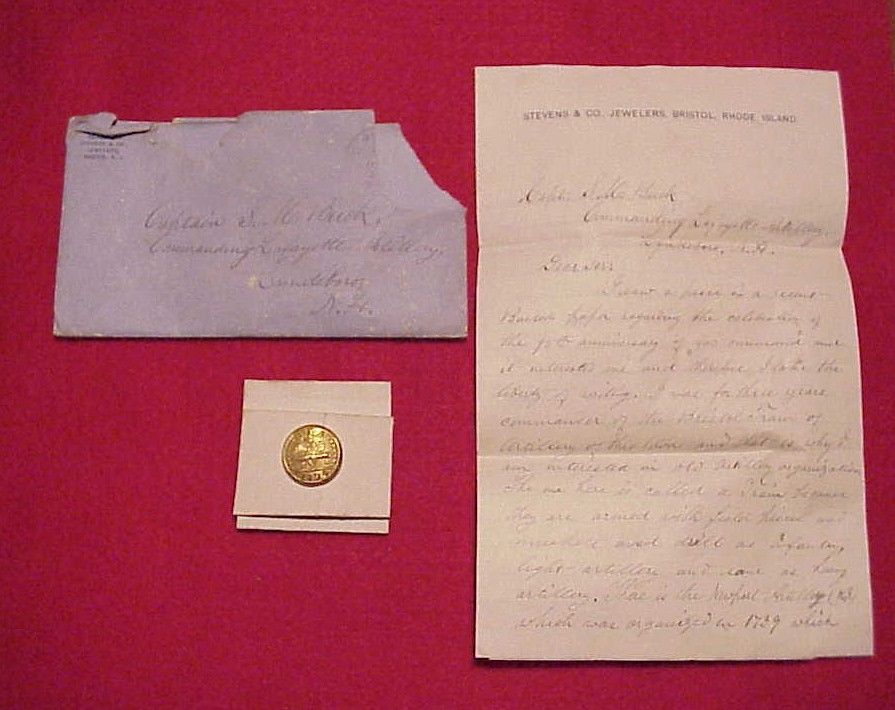 STEVENS & CO.
JEWELERS,
Captain S. M. Buck,
Commanding Lafayette Artillery,
Lyndeboro
N. H.
STEVENS & CO. JEWELERS, BRISTOL, RHODE ISLAND
Capt. Buck
Commanding Lafayette Artillery,
Lyndeboro, N.H.
Dear Sir:
I saw a piece in a recent
Boston paper regarding the celebration of
the anniversary of your command and
it interests me and therefore I take the
liberty of writing. I was for three years
commander of the Bristol Train of
Artillery of this town and that is why I
am interested in old Artillery organizations
The one here is called a Train because
they are armed with field pieces and
muskets and drill as infantry,
light artillery and some as heavy
artillery. There is the Newport Artillery
which was organized in 1739 which